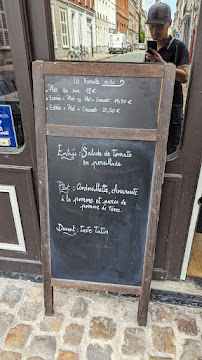 La Formule midi
Plat du jour = 12 €
Entrée + Plat ou Plat + Dessert
Entrée + Plat + Dessert
Entrée : Salade de Tomate
en persillade
Plat : Andouillette, choucroute
à la pomme et purée de
pomme de terre.
Dessert : tarte Tatin